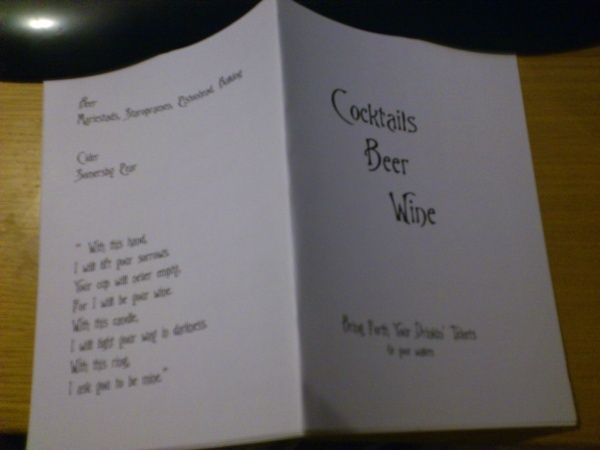 Beer
Mariestads, Staropramen,
Cider
Somersby Pear
" With this hand,
I will lift your sorrows.
Your cup will never empty,
For I will be your wine.
With this candle,
I will light your way in darkness.
With this ring,
I ask you to be mine."
Cocktails
Beer
Wine
Bring Forth Your Drinkin' Tickets
to your waiters